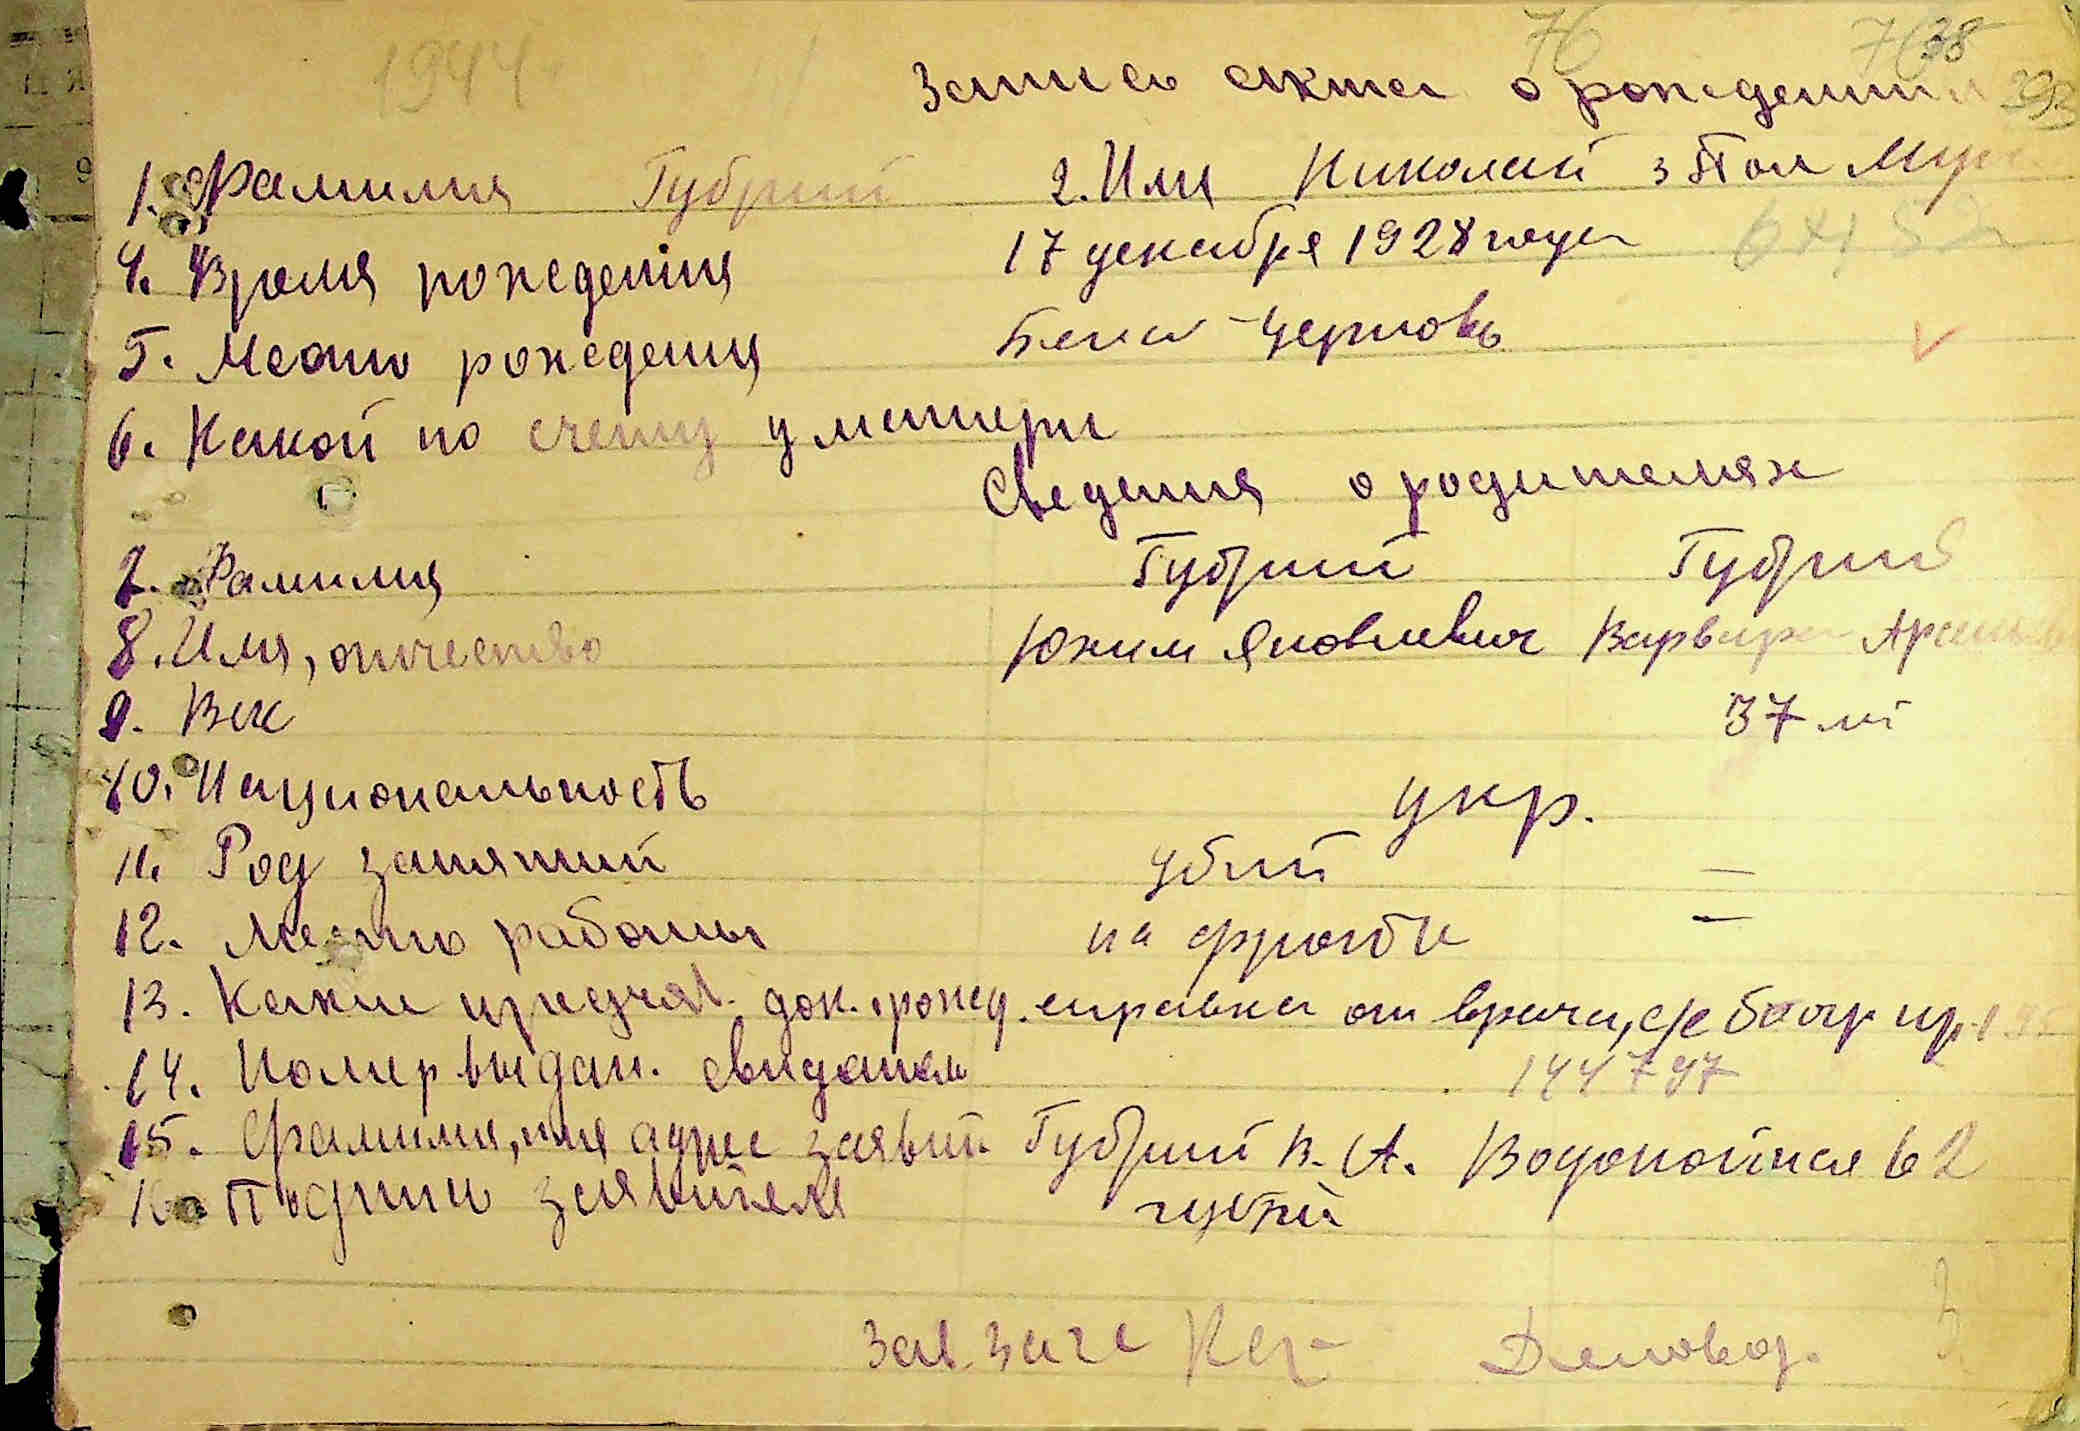 1944 76 76 38
Запись акта о рождении
1. Фамилия Губрий 2. Имя Николай 3 Пол Муж
4. Время рождения 17 декабря 1928 года
5. Место рождения Бела-Церковь
6. Какой по счету у матери
Сведения о родителях
7. Фамилия Губрий Губрий
8. Имя, отчество Юхим Яковлевич Варвара
9. Век 37 лет
10. Национальность укр.
11. Род занятий убит =
12. Место работы на фронте
13. Какие предъяв. док. рожд. справка от врача,
14. Номер выдан. свидетел 144797
15. Фамилия, имя адрес заявит. Губрий В. А. Водопойная 62
16. Подпись заявителя губрий
Зав. Загс Деловод.